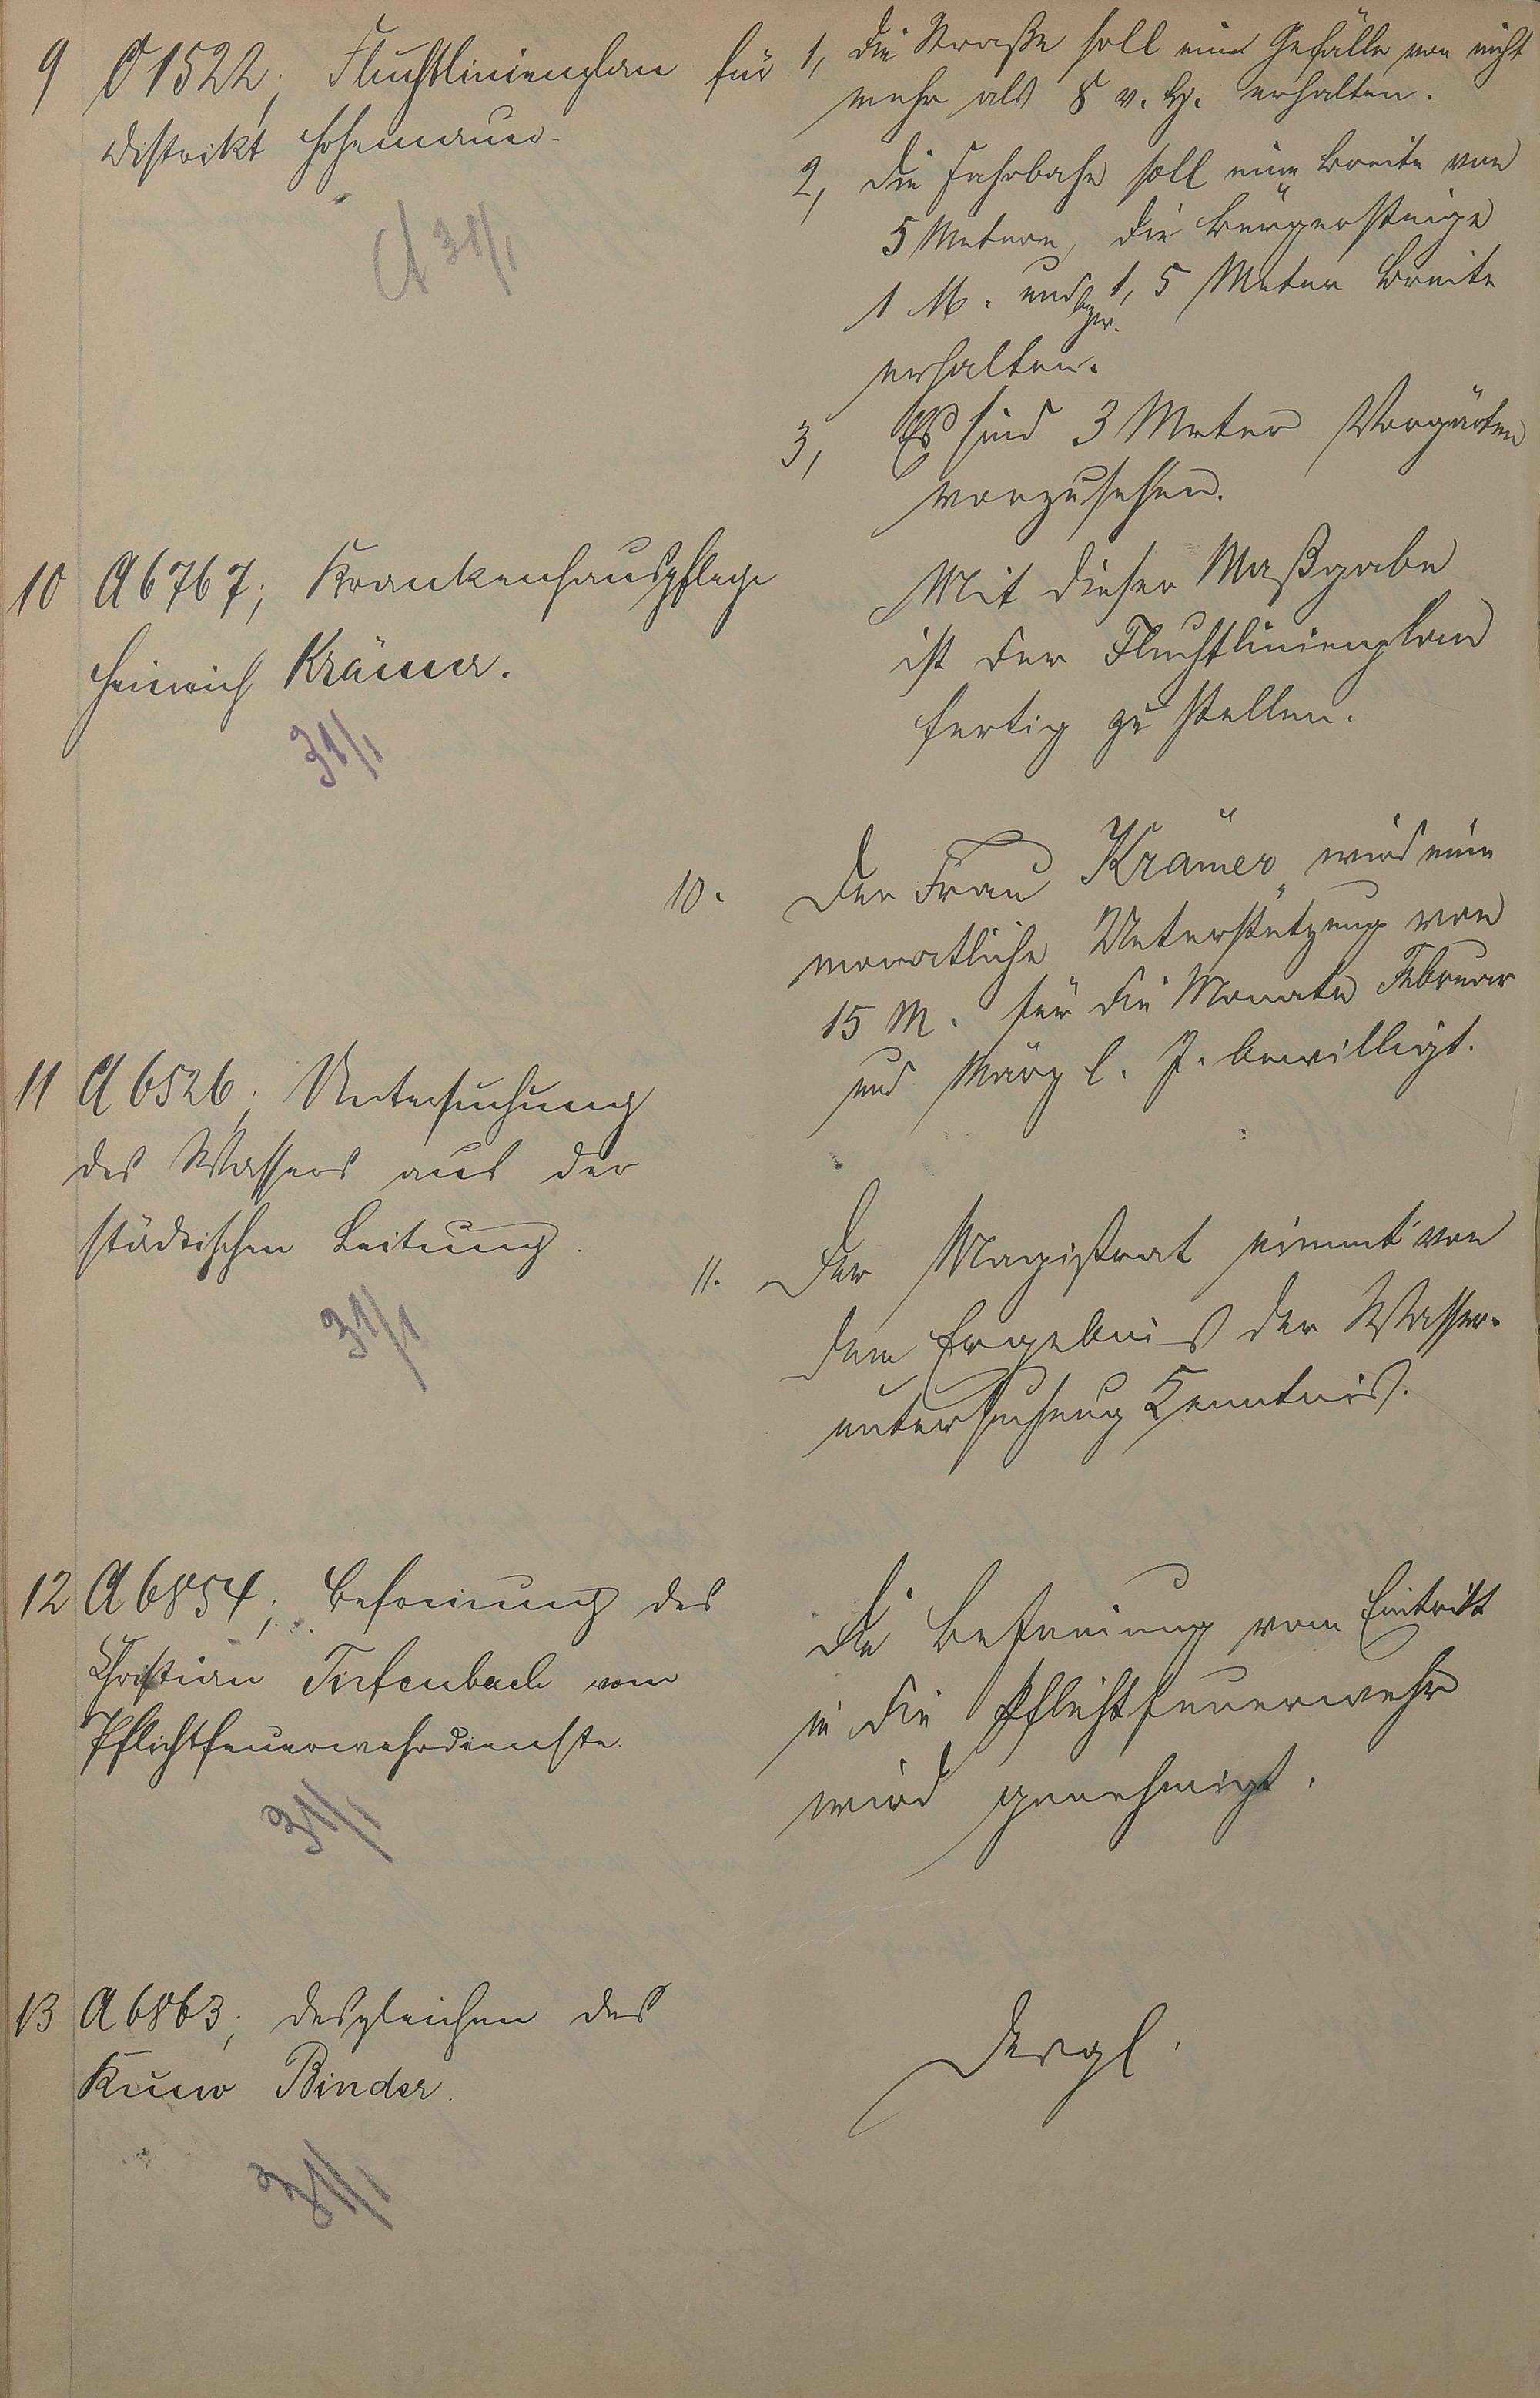 9 C 1522; Fluchtlinienplan für
Distrikt Hohemauer.
A 31/1
1, die Straße soll eine Gefälle von nicht
mehr als 8 v. H. erhalten.
2, die Fahrbahn soll eine Breite von
5 Metern, die Bürgersteige
1 M. und bzw. 1,5 Meter Breite
erhalten.
3, Es sind 3 Meter Vorgärten
vorzusehen.
Mit dieser Maßgabe
ist der Fluchtlinienplan
fertig zu stellen.
10 A 6767; Krankenhauspflege
Heinrich Krämer.
31/1
10. Der Frau Krämer wird eine
monatliche Unterstützung von
15 M. für die Monate Februar
und März l. J. bewilligt.
11 A 6526; Untersuchung
des Wassers aus der
städtischen Leitung.
31/1
11. Der Magistrat nimmt von
dem Ergebnis der Wasser-
untersuchung Kenntnis.
12 A 6854; Befreiung des
Christian Tiefenbach vom
Pflichtfeuerwehrdienste.
31/1
Die Befreiung vom Eintritt
in die Pflichtfeuerwehr
wird genehmigt.
13 A 6863; desgleichen des
Kuno Binder.
31/1
Desgl.